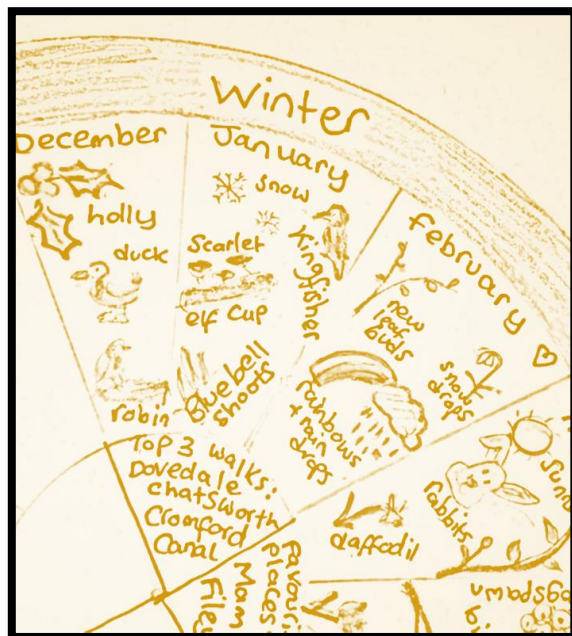 Winter
December
holly
duck
robin
January
snow
Scarlet
elf cup
Kingfisher
Bluebell
shoots
February
new
leaf
buds
snow
drops
rainbows
+ rain
drops
Top 3 walks:
Dovedale
Chatsworth
Cromford
Canal
daffodil
rabbits
places
Mam